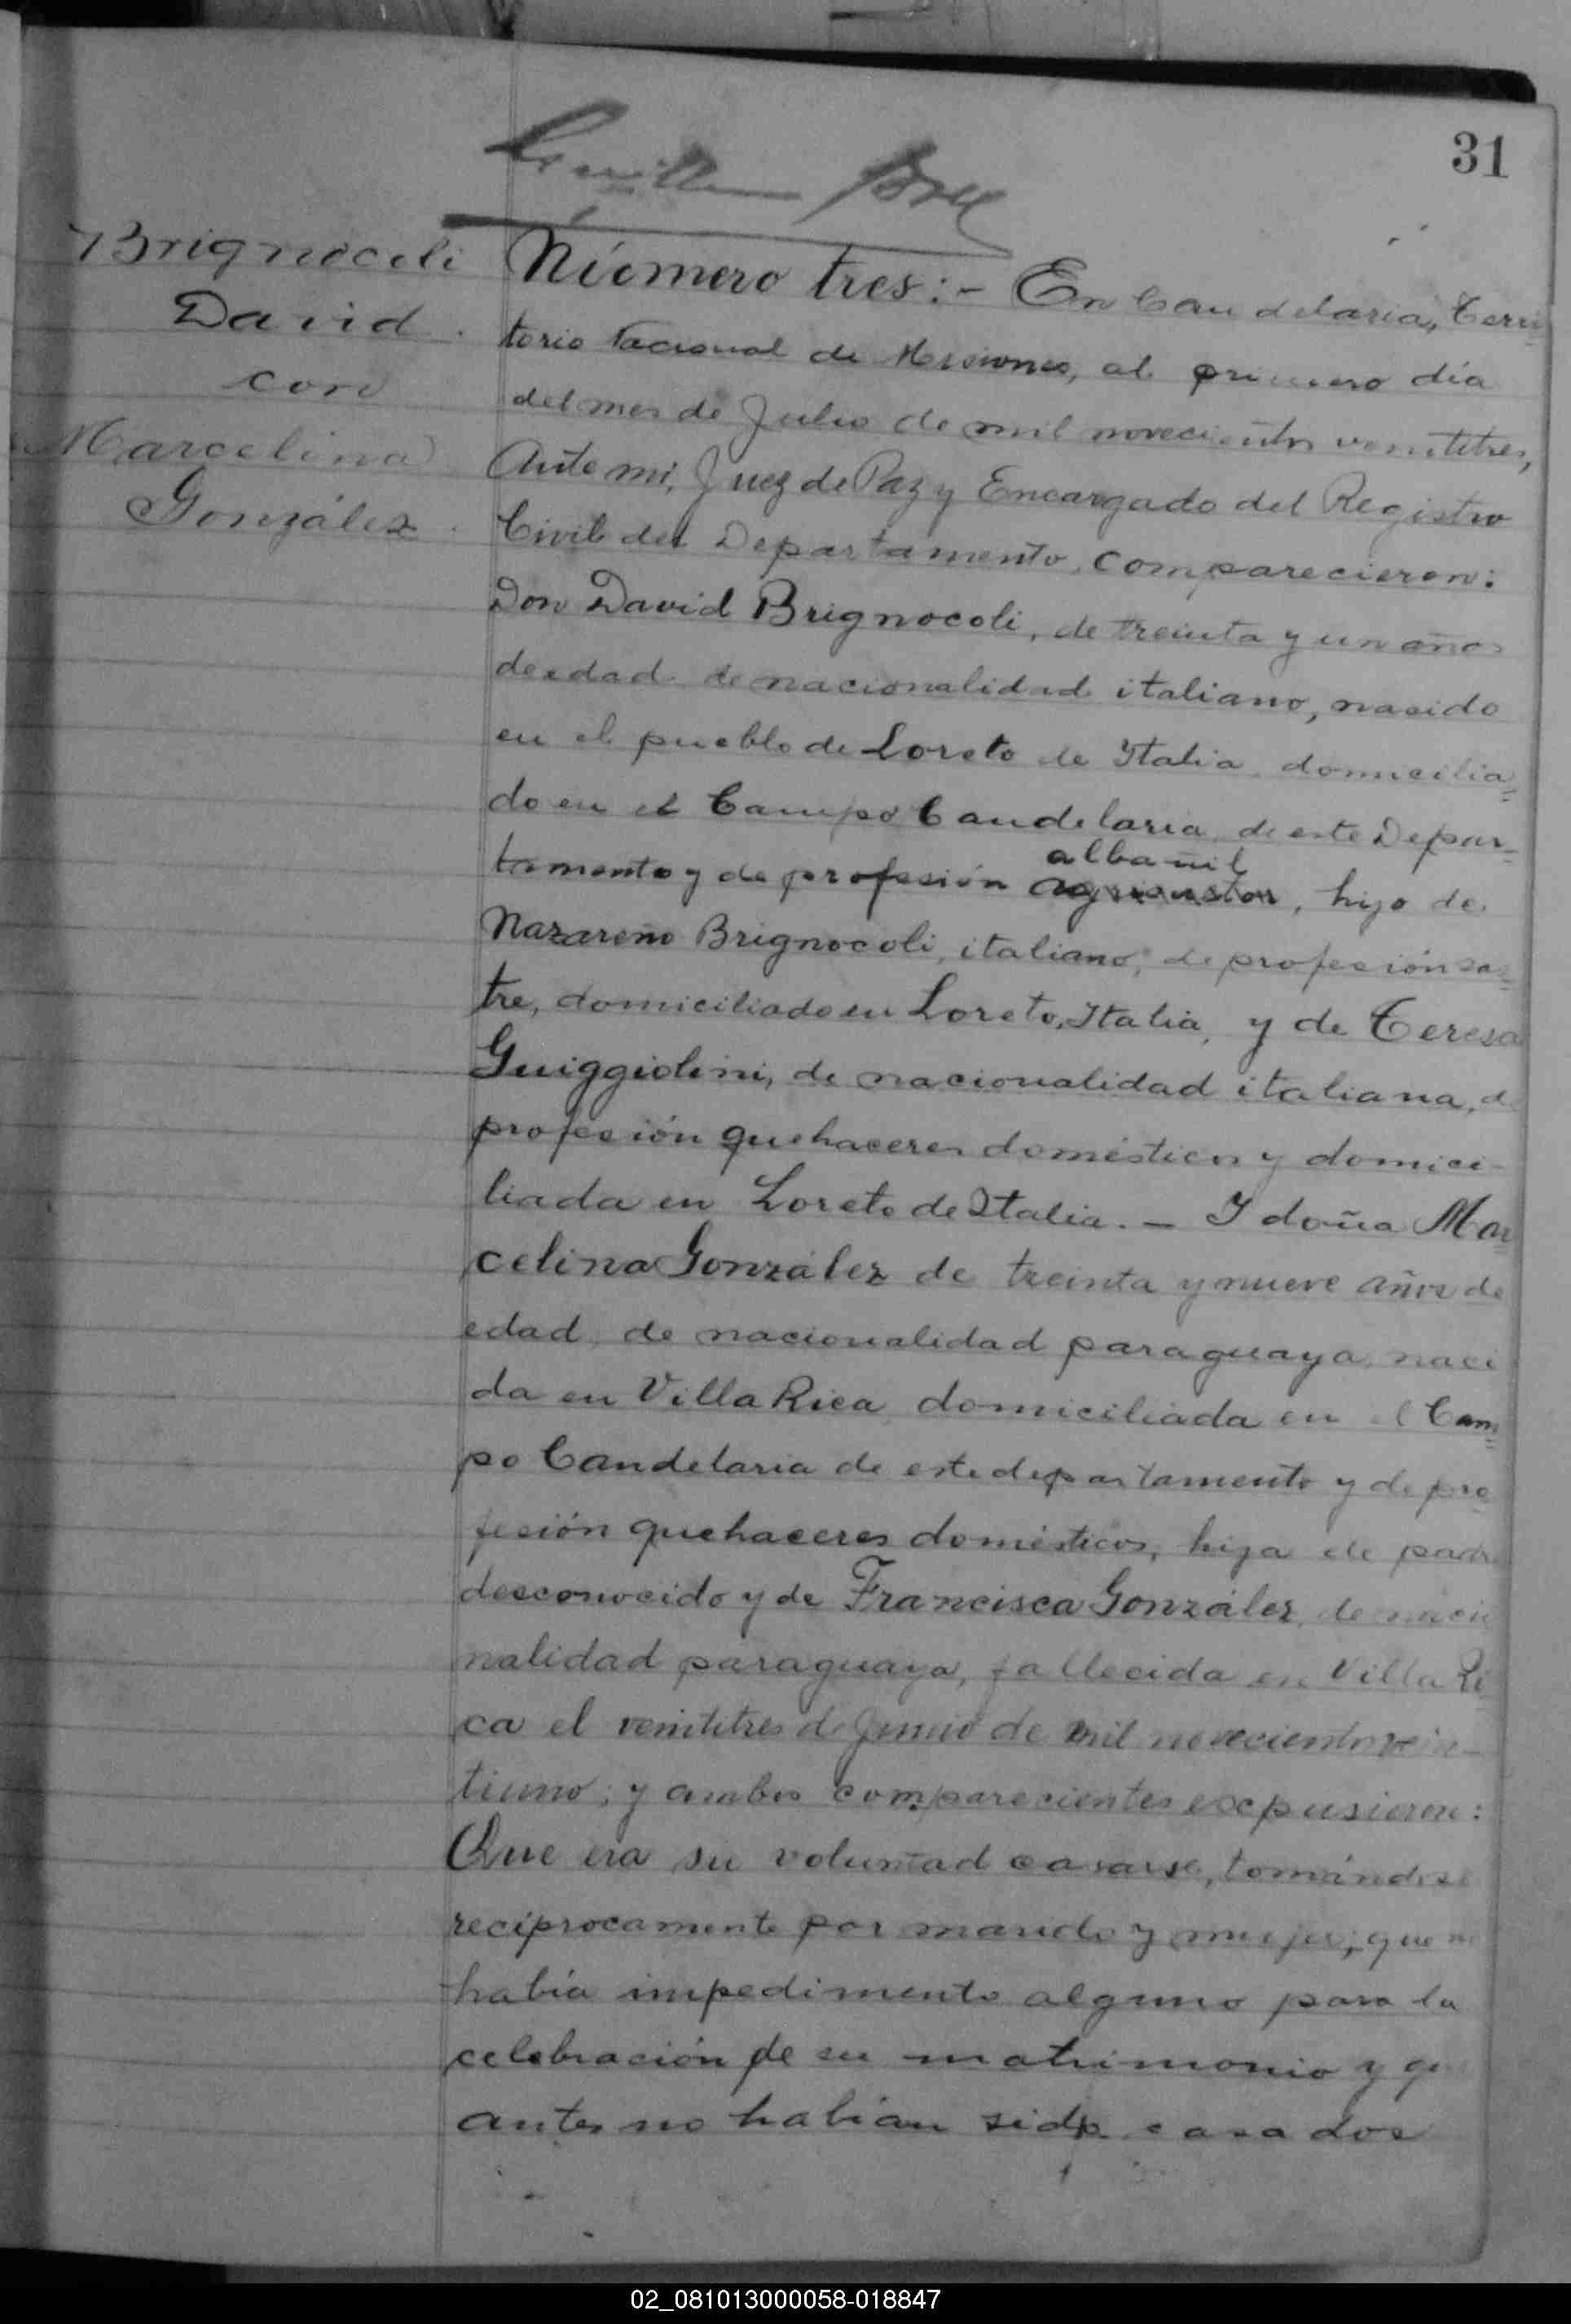 31
Brignocoli
David
con
Marcelina
González.
Número tres:- En Candelaria, Terri
torio Nacional de Misiones, al primero día
del mes de Julio de mil novecientos veintitres,
Ante mí, Juez de Paz y Encargado del Registro
Civil del Departamento, comparecieron:
Don David Brignocoli, de treinta y un años
de edad de nacionalidad italiano, nacido
en el pueblo de Loreto de Italia, domicilia=
do en el Campo Candelaria, de este Depar=
tamento y de profesión albañil, hijo de
Nazareno Brignocoli, italiano, de profesión sas=
tre, domiciliado en Loreto, Italia, y de Teresa
Guiggiolini, de nacionalidad italiana, de
profesión quehaceres domésticos y domici-
liada en Loreto de Italia. - Y doña Mar
celina González de treinta y nueve años de
edad, de nacionalidad paraguaya, naci
da en Villa Rica, domiciliada en el Cam=
po Candelaria de este departamento y de pro
fesión quehaceres domésticos, hija de padre
desconocido y de Francisca González, de nacio
nalidad paraguaya, fallecida en Villa Ri
ca el veintitres de Junio de mil novecientos vein-
tiuno; y ambos comparecientes expusieron:
Que era su voluntad casarse, tomándose
recíprocamente por marido y mujer; que no
había impedimento alguno para la
celebración de su matrimonio y que
antes no habían sido casados
02_081013000058-018847